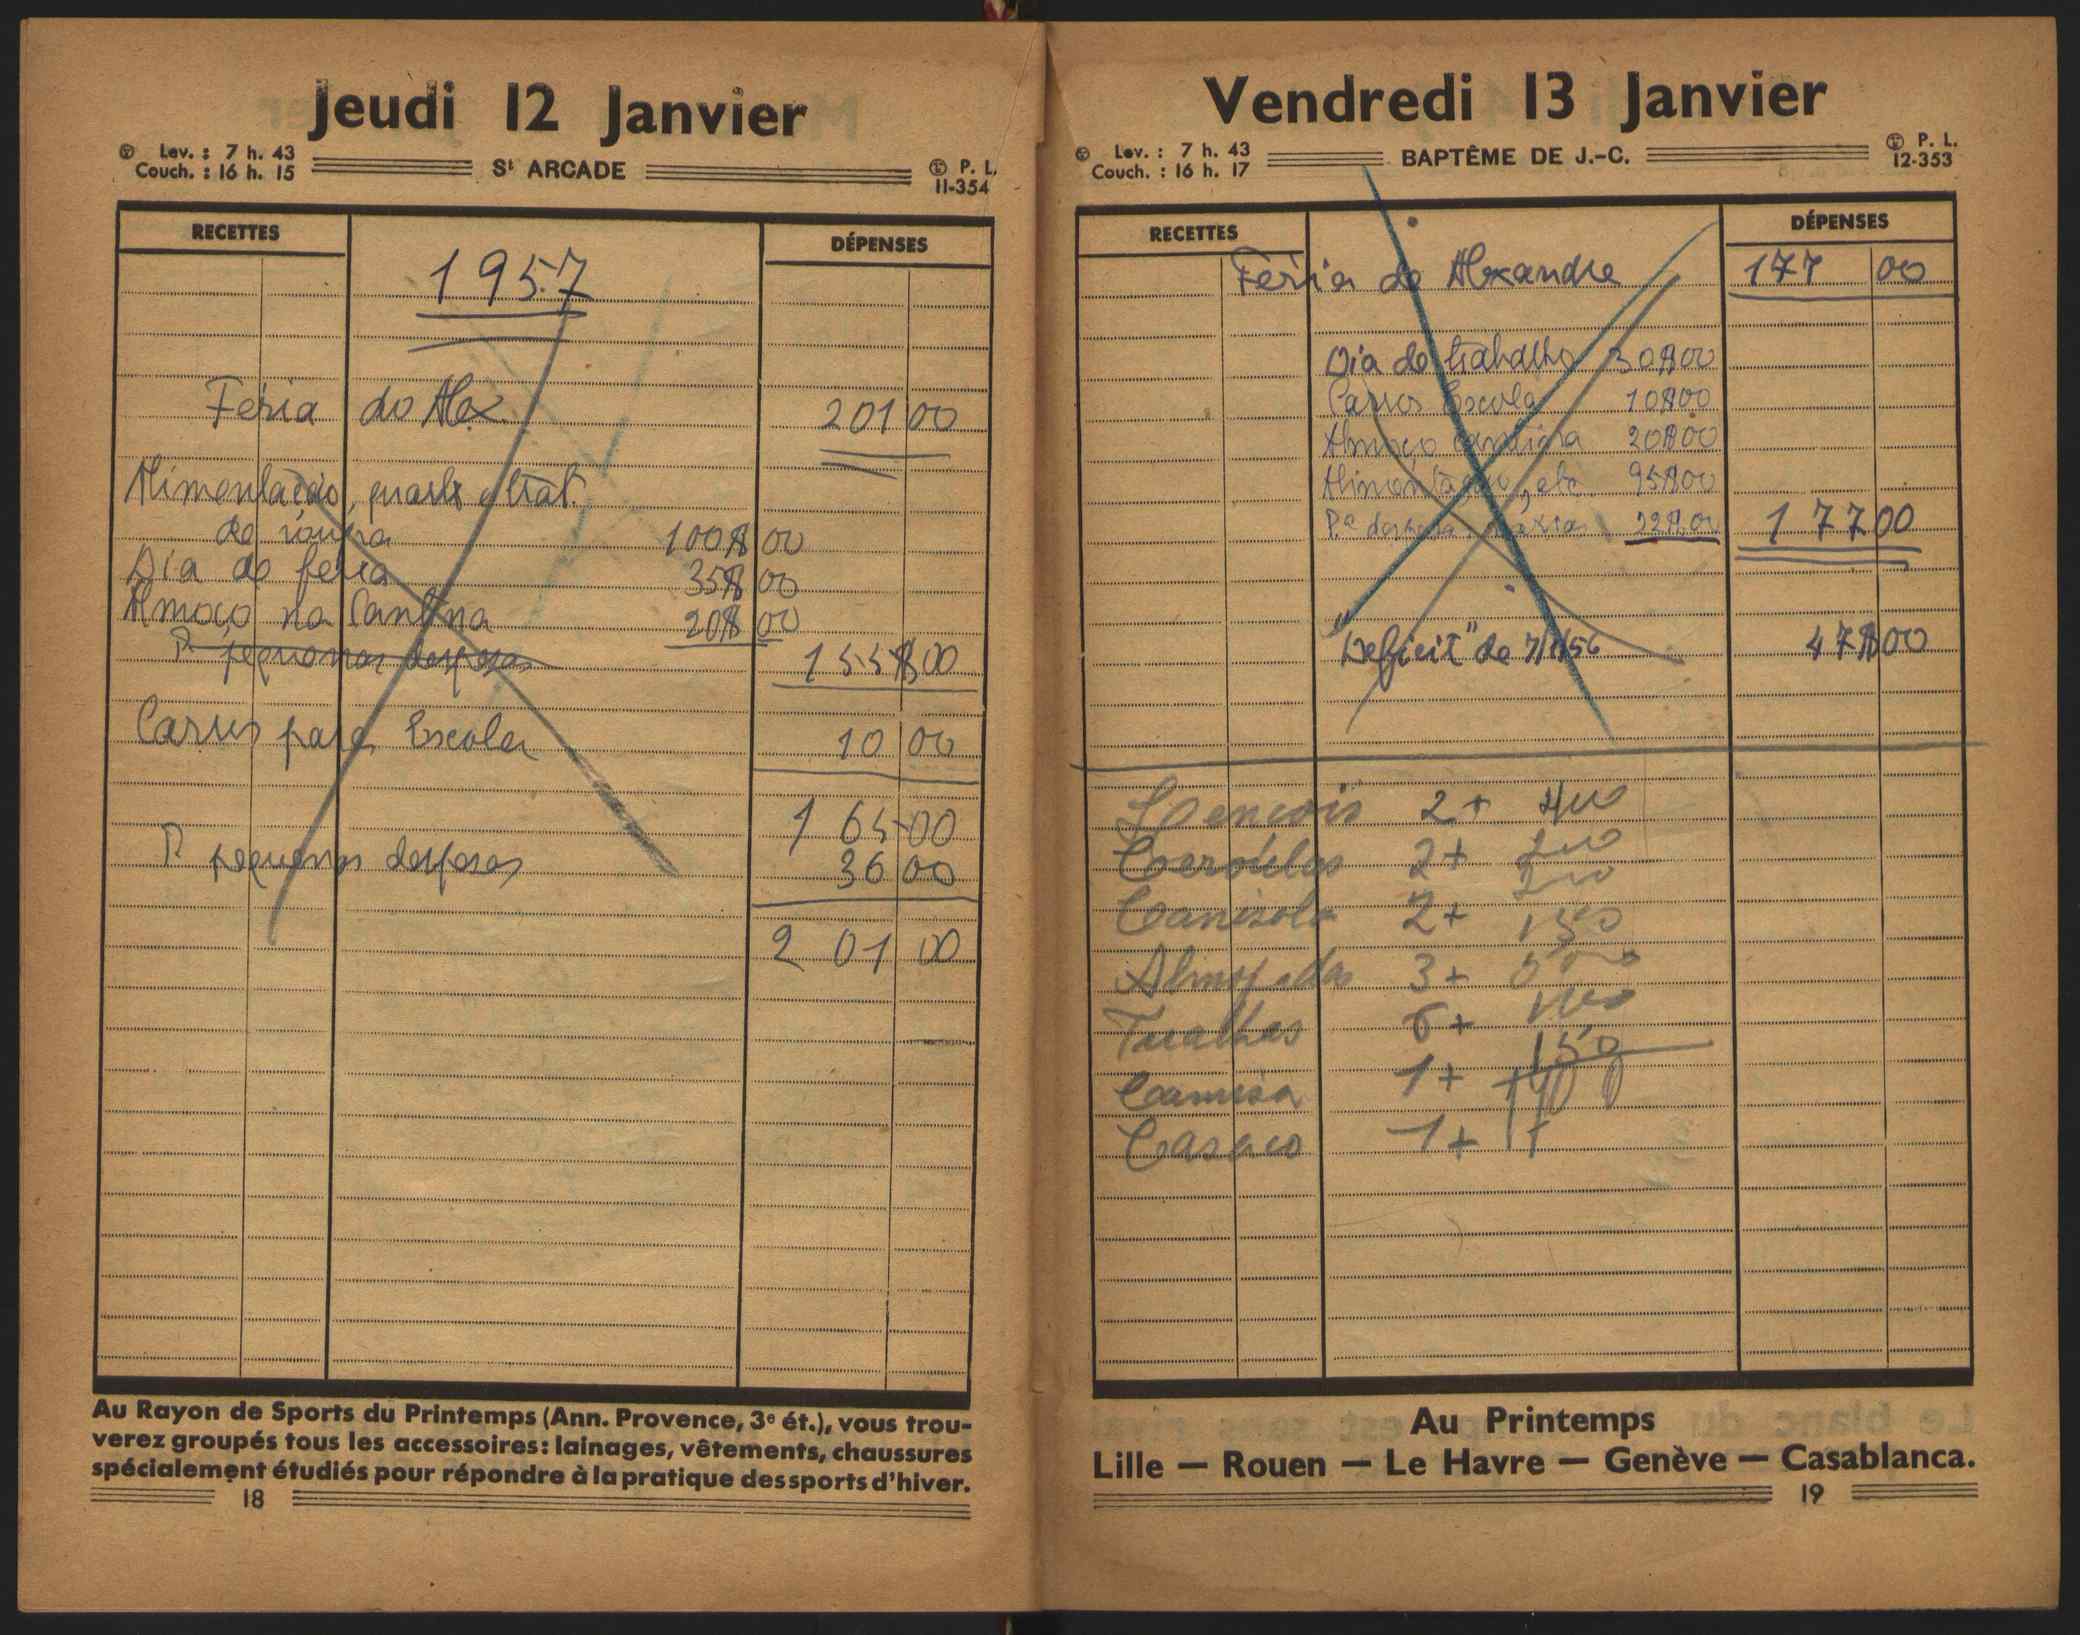 Jeudi 12 Janvier
Lev. : 7 h. 43
Couch. : 16 h. 15
St ARCADE
P. L.
11-354
RECETTES
DÉPENSES
1957
Féria do Alex 201 00
Alimentação, quarto e trat.
de roupa 100$00
Dia de feria 35$00
Almoço na Cantina 20$00
P. pequenas despesas 155$00
Carros para Escola 10 00
165 00
P. pequenas despesas 36 00
201 00
Au Rayon de Sports du Printemps (Ann. Provence, 3e ét.), vous trou-
verez groupés tous les accessoires: lainages, vêtements, chaussures
spécialement étudiés pour répondre à la pratique des sports d'hiver.
18
Vendredi 13 Janvier
Lev. : 7 h. 43
Couch. : 16 h. 17
BAPTÊME DE J.-C.
P. L.
12-353
RECETTES
DÉPENSES
Féria do Alexandre 177 00
Dia de trabalho 30$00
Carros Escola 10$00
Almoço cantina 20$00
Alimentação, etc. 95$00
Pa despesas 22$00 177 00
"Deficit" de 7/1/56 47$00
Lencois 2+ 400
Ceroulas 2+ 200
Camisola 2+ 200
Almofadas 3+ 150
Toalhas 6+
Camisa 1+ 150
Casaco 1+
Au Printemps
Lille — Rouen — Le Havre — Genève — Casablanca.
19